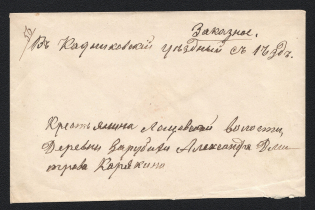 Заказное.
Въ Кадниковскiй Уѣздный съѣздъ.
Крестьянина
волости,
Деревни Зарубихи Александра Дми-
трова Корякина